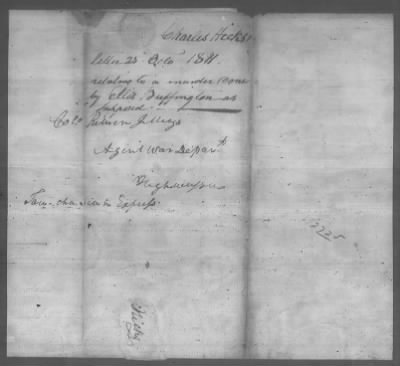 Charles Hicks
letter 25 Octo 1811
relating to a murder done
by Ellis Buffington as
supposed
Colo Return J Meigs
Agent War Depart
Highwassee
Express
Hicks